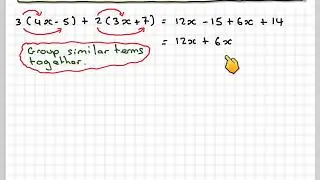 3(4x-5) + 2(3x+7) = 12x - 15 + 6x + 14
= 12x + 6x
Group similar terms
together.